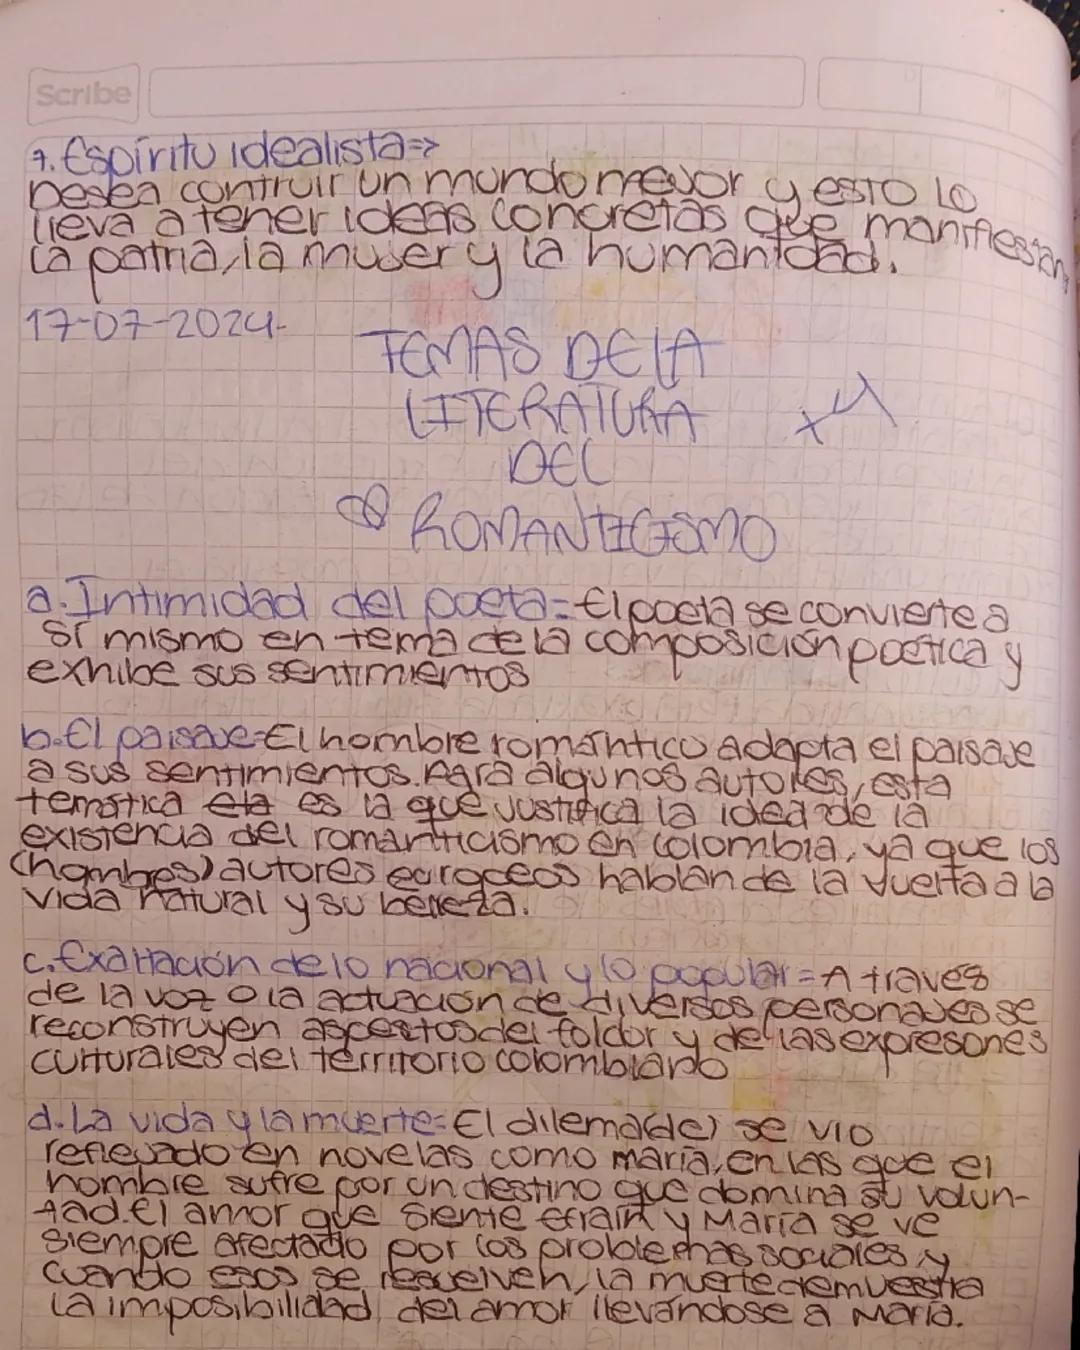 Scribe
7. Espíritu idealista=>
Desea contruir un mundo mejor y esto lo
lleva a tener ideas concretas que manifiestan,
la patria, la mujer y la humanidad.
17-07-2024-
TEMAS DE LA
LITERATURA
DEL
ROMANTICISMO
a. Intimidad del poeta= El poeta se convierte a
sí mismo en tema de la composición poética y
exhibe sus sentimientos
b. El paisaje= El hombre romántico adapta el paisaje
a sus sentimientos. Para algunos autores, esta
temática ela es la que justifica la idea de la
existencia del romanticismo en colombia, ya que los
(hombres) autores europeos hablan de la vuelta a la
vida natural y su belleza.
c. Exaltación de lo nacional y lo popular= A través
de la voz o la actuación de diversos personajes se
reconstruyen aspectos del folclor y de las expresones
culturales del territorio colombiano
d. La vida y la muerte= El dilema(de) se vio
reflejado en novelas como maría, en las que el
hombre sufre por un destino que domina su volun-
tad. El amor que siente efraín y María se ve
siempre afectado por los problemas sociales y
cuando esos se resuelven, la muerte demuestra
la imposibilidad del amor llevándose a María.